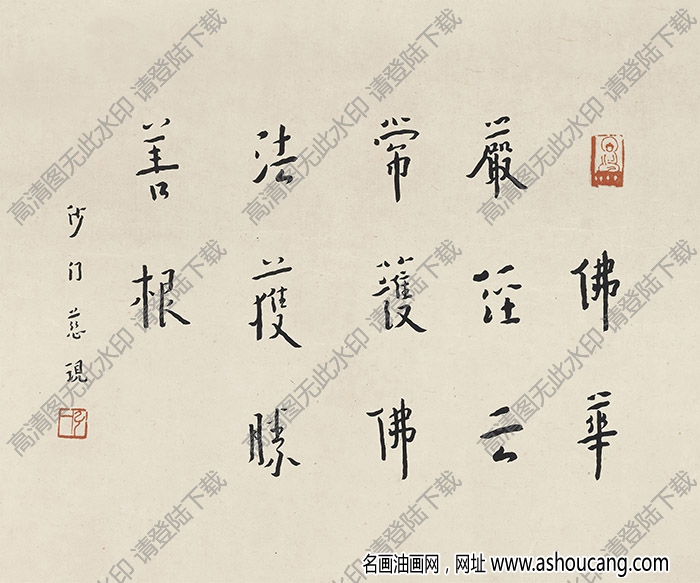 佛華
嚴經云
常護佛
法獲勝
善根
沙门慈現
高清图无此水印 请登陆下载
高清图无此水印 请登陆下载
高清图无此水印 请登陆下载
高清图无此水印 请登陆下载
高清图无此水印 请登陆下载
高清图无此水印 请登陆下载
请登陆下载
请登陆下载
请登陆下载
名画油画网，网址 www.ashoucang.com